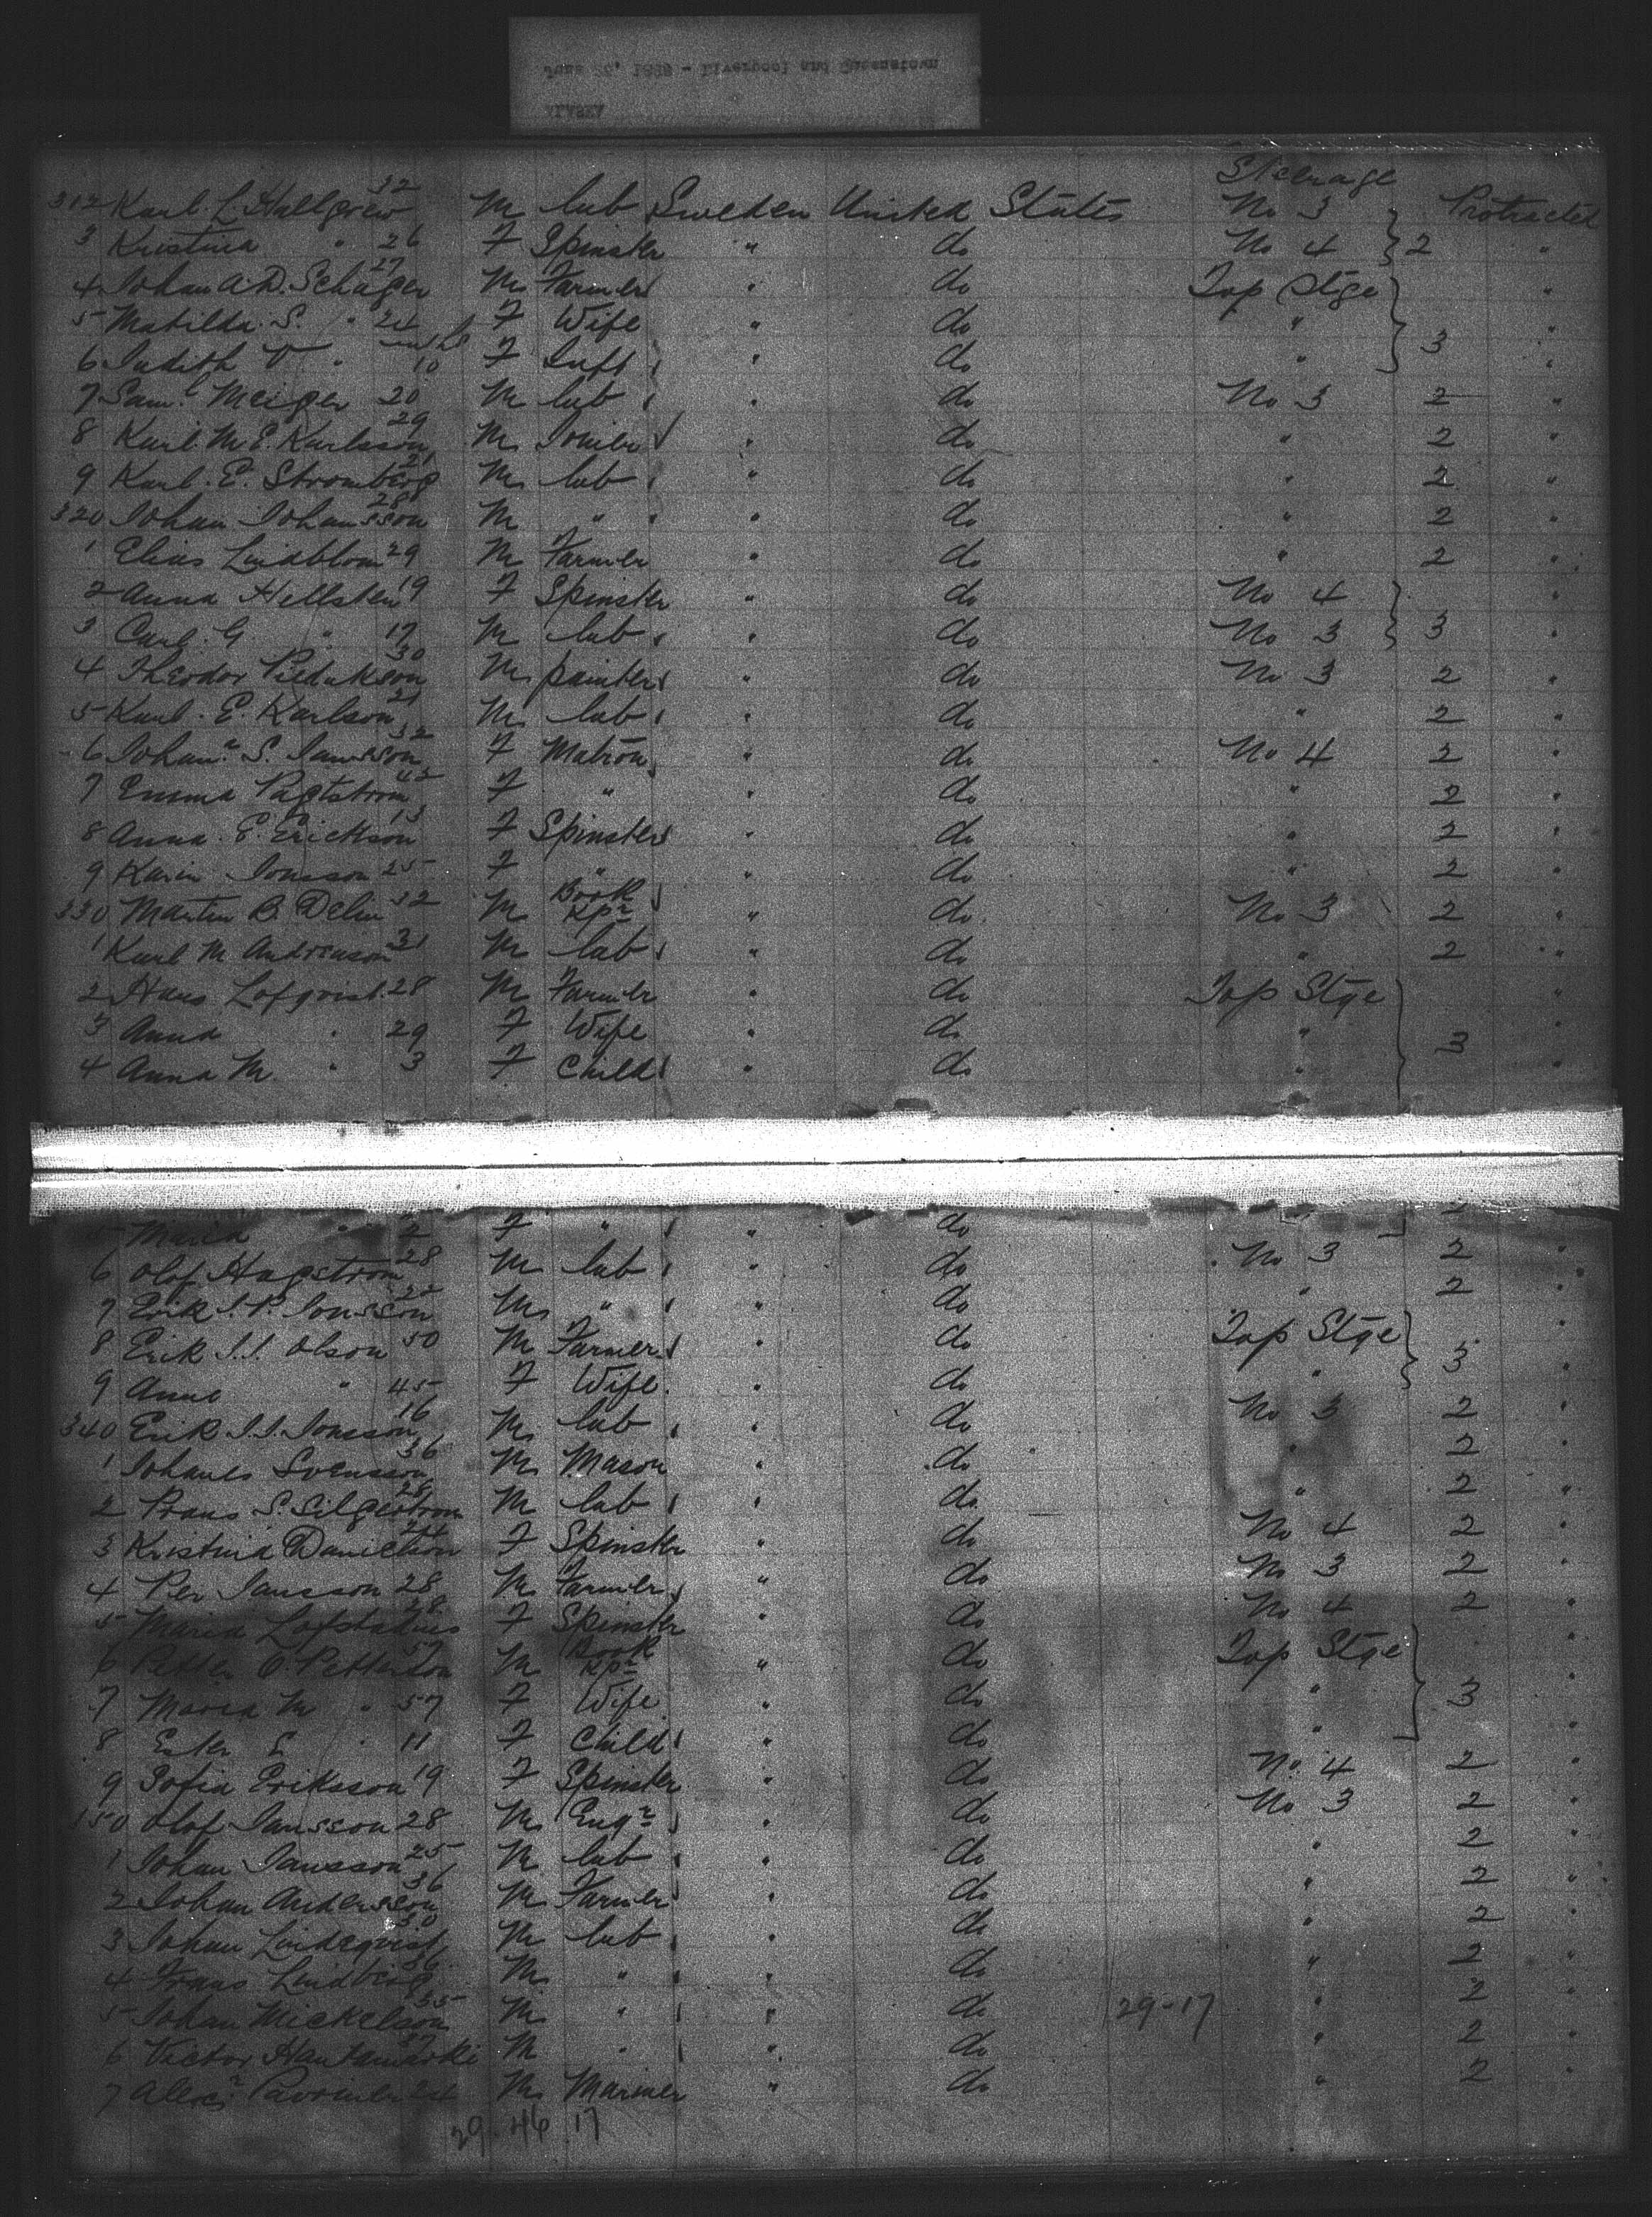 ALASKA
June 26, 1889 - Liverpool and Queenstown
Steerage
312 Karl L Hallgren 32 M lab Sweden United States No 3 Protracted
3 Kristina " 26 F Spinster " do No 4 2 "
4 Johan A.D. Schager 27 M Farmer " do Top Stge "
5 Matilda S. " 24 F Wife " do " "
6 Judith V " 10 F Inft " do " 3 "
7 Saml Meiger 20 M lab " do No 3 2 "
8 Karl M E Karlsson 29 M Joiner " do " 2 "
9 Karl E. Stromberg 21 M lab " do " 2 "
320 Johan Johansson 28 M " " do " 2 "
1 Elias Lindblom 29 M Farmer " do " 2 "
2 Anna Hellsten 19 F Spinster " do No 4 "
3 Carl G " 17 M lab " do No 3 3 "
4 Theodor 30 M painter " do No 3 2 "
5 Karl E. Karlson 21 M lab " do " 2 "
6 Johana S. Jansson 32 F Matron " do No 4 2 "
7 Emma 42 F " " do " 2 "
8 Anna E. Erickson F Spinster " do " 2 "
9 Karin Jonsson 25 F " " do " 2 "
330 Martin B. Delin 32 M Book Kpr " do No 3 2 "
1 Karl M Andreason 31 M lab " do " 2 "
2 Hans Lofqvist 28 M Farmer " do Top Stge "
3 Anna " 29 F Wife " do " 3
4 Anna M. " 3 F Child " do " "
5 Maria " 2 F " " do "
6 Olof Hagstrom 28 M lab " do No 3 2 "
7 Erik J.P. Jonsson M " " do " 2 "
8 Erik J.J. Olson 50 M Farmer " do Top Stge "
9 Anna " 45 F Wife " do " 3 "
340 Erik J.J. Jonsson 16 M lab " do No 3 2 "
1 Johanes Svensson 36 M Mason " do " 2 "
2 Frans S. Silgestrom 28 M lab " do " 2 "
3 Kristina Danielson 24 F Spinster " do No 4 2 "
4 Per Jansson 28 M Farmer " do No 3 2 "
5 Maria Lofstadius 28 F Spinster " do No 4 2 "
6 Petter O. Petterson 57 M Book Kpr " do Top Stge "
7 Maria M " 57 F Wife " do " 3 "
8 Ester E " 11 F Child " do " "
9 Sofia Eriksson 19 F Spinster " do No 4 2 "
350 Olof Jansson 28 M Engr " do No 3 2 "
1 Johan Jansson 25 M lab " do " 2 "
2 Johan Andersson 36 M Farmer " do " 2 "
3 Johan Lindeqvist 30 M lab " do " 2 "
4 Frans Lindberg 36 M " " do " 2 "
5 Johan Mickelson 35 M " " do 29-17 " 2 "
6 Victor Hautamaki 37 M " " do " 2 "
7 24 M Mariner " do " 2 "
29 - 46 17